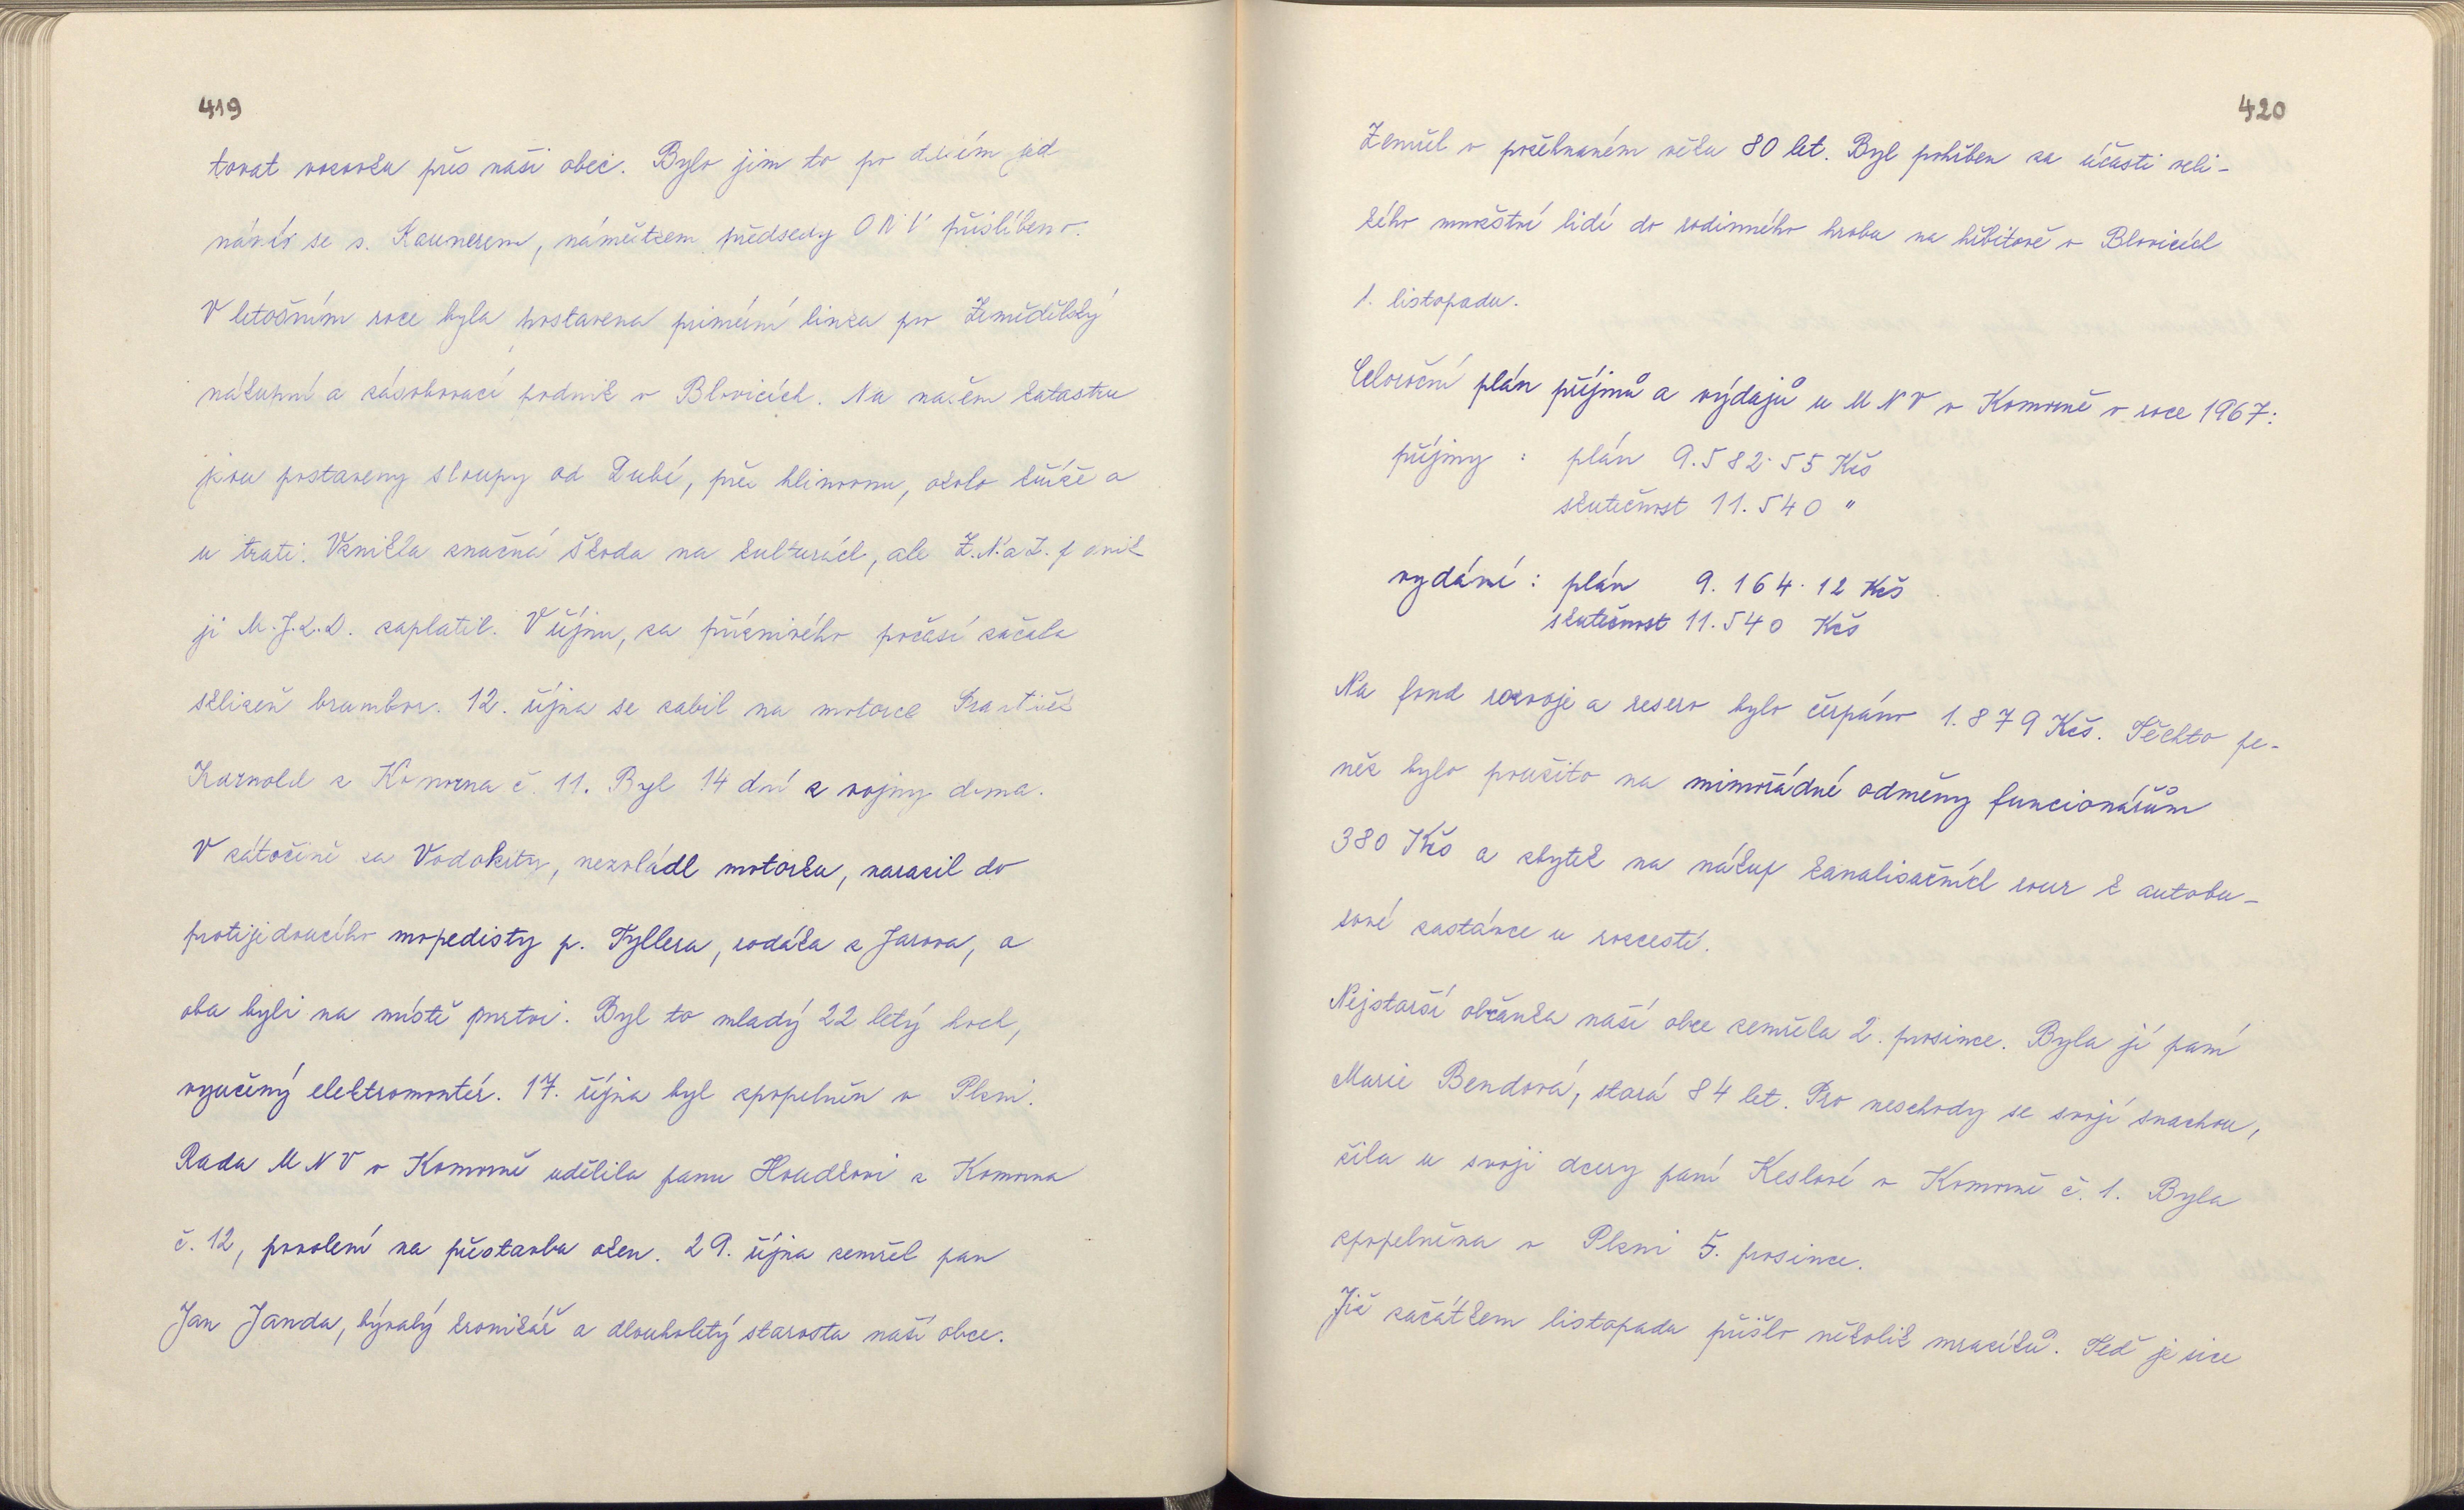 419
tovat vozovku přes naši obec. Bylo jim to po delším jed
náním se s. Kaunerem, náměstkem předsedy ONV přislíbeno.
V letošním roce byla postavena primérní linka pro Zemědělský
nákupní a zásobovací podnik v Blovicích. Na našem katastru
jsou postaveny sloupy od Dubí, přes hlinovnu, okolo kříže a
u trati. Vznikla značná škoda na kulturách, ale Z.N.a Z. podnik
ji M.J.Z.D. zaplatil. V říjnu, za příznivého počasí začala
sklizeň brambor. 12. října se zabil na motorce František
Karnold z Komorna č. 11. Byl 14 dní z vojny doma.
V zátočině za Vodokrty, nezvládl motorku, narazil do
protijedoucího mopedisty p. Tyllera, rodáka z Jarova, a
oba byli na místě mrtvi. Byl to mladý 22 letý hoch,
vyučený elektromontér. 17. října byl zpopelněn v Plzni.
Rada MNV v Komorně udělila panu Houdkovi z Komorna
č. 12, povolení na přestavbu oken. 29. října zemřel pan
Jan Janda, bývalý kronikář a dlouholetý starosta naší obce.
420
Zemřel v požehnaném věku 80 let. Byl pohřben za účasti veli-
kého množství lidí do rodinného hrobu na hřbitově v Blovicích
1. listopadu.
Celoroční plán příjmů a výdajů u MNV v Komorně v roce 1967:
příjmy : plán 9.582.55 Kčs
skutečnost 11.540 "
vydání : plán 9.164.12 Kčs
skutečnost 11.540 Kčs
Na fond rozvoje a reserv bylo čerpáno 1.879 Kčs. Těchto pe-
něz bylo použito na mimořádné odměny funcionářům
380 Kčs a zbytek na nákup kanalisačních rour k autobu-
sové zastávce u rozcestí.
Nejstarší občanka naší obce zemřela 2. prosince. Byla jí paní
Marie Bendová, stará 84 let. Pro neschody se svojí snachou,
žila u svoji dcery paní Keslové v Komorně č. 1. Byla
zpopelněna v Plzni 5. prosince.
Již začátkem listopadu přišlo několik mrazíků. Teď je sice